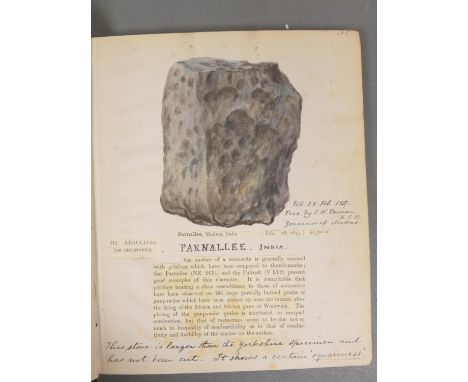 Fell 28 Feb. 1857.
Pres. by S. W. Denison
K.C.B.
Governor of Madras.
Parnallee, Madura, India Feb. 28, 1857
III. AEROLITES
PARNALLEE, INDIA.
the surface of a meteorite is generally covered
with pittings which have been compared to thumb-marks;
the Parnallee (NE 263), and the Pultusk (V 312) present
good examples of this character. It is remarkable that
pittings bearing a close resemblance to those of meteorites
have been observed on the large partially burned grains of
gunpowder which have been picked up near the muzzle after
the firing of the 35-ton and 80-ton guns at Woolwich. The
pitting of the gunpowder grains is attributed to unequal
combustion, but that of meteorites seems to be due not so
much to inequality of combustibility as to that of conduc-
tivity and fusibility of the matter on the surface.
This stone is larger than the Yorkshire specimen and
has not been cut. It shows a certain 'squareness'.